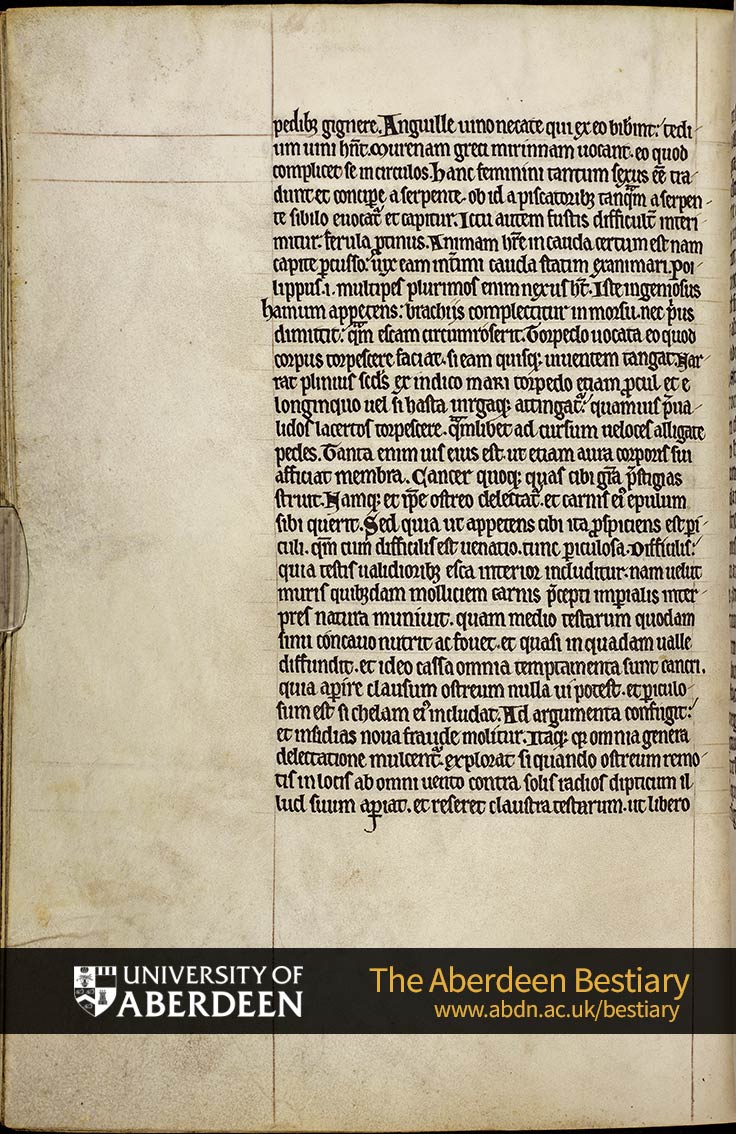 pedibꝫ gignere. Anguille uino necate qui ex eo bib̄int: tedi-
um uini hn̄t. Murenam greci mirinnam uocant. eo quod
complicet se in circulos. hanc feminini tantum sexus eē tra-
dunt et concipe a serpente. ob id a piscatoribꝫ tanqᷓm a serpen-
te sibilo euocatᷣ et capitur. Ictu autem fustis difficult̄ interi-
mitur: ferula ꝓtinus. Animam hr̄e in cauda certum est nam
capite ꝑcusso: uix eam int̄imi cauda statim exanimari. Poi-
lippus .i. multipes plurimos enim nexus ht̄. Iste ingeniosus
hamum appetens: brachiis complectitur in morsu. nec p̄us
dimittit: qᷓm escam circumroserit. Torpedo uocata eo quod
corpus torpescere faciat. si eam quisqꝫ uiuentem tangat. Nar-
rat plinius scd̄s ex indico mari torpedo etiam ꝓcul et e
longinquo uel si hasta uirgaqꝫ attingatᷣ: quamuis p̄ua-
lidos lacertos torpescere. qᷓmlibet ad cursum ueloces alligare
pedes. Tanta enim uis eius est. ut etiam aura corporis sui
afficiat membra. Cancer quoqꝫ quas cibi gr̄a p̄stigias
struit. Namqꝫ et ip̄e ostreo delectatᷣ. et carnis eiꝰ epulum
sibi querit. Sed quia ut appetens cibi ita ꝓspiciens est ꝑi-
culi. qm̄ cum difficilis est uenatio. tunc ꝑiculosa. Difficilis:
quia testis ualidioribꝫ esca interior includitur. nam uelut
muris quibꝫdam molliciem carnis p̄cepti imꝑialis inter-
pres natura muniuit. quam medio testarum quodam
sinu concauo nutrit ac fouet. et quasi in quadam ualle
diffundit. et ideo cassa omnia temptamenta sunt cancri.
quia aꝑire clausum ostreum nulla ui potest. et ꝑiculo-
sum est si chelam eiꝰ includat. Ad argumenta confugit:
et insidias noua fraude molitur. Itaqꝫ qꝫ omnia genera
delectatione mulcentᷣ. explorat si quando ostreum remo-
tis in locis ab omni uento contra solis radios dipticum il-
lud suum aꝑiat. et reseret claustra testarum. ut libero
UNIVERSITY OF
ABERDEEN
The Aberdeen Bestiary
www.abdn.ac.uk/bestiary